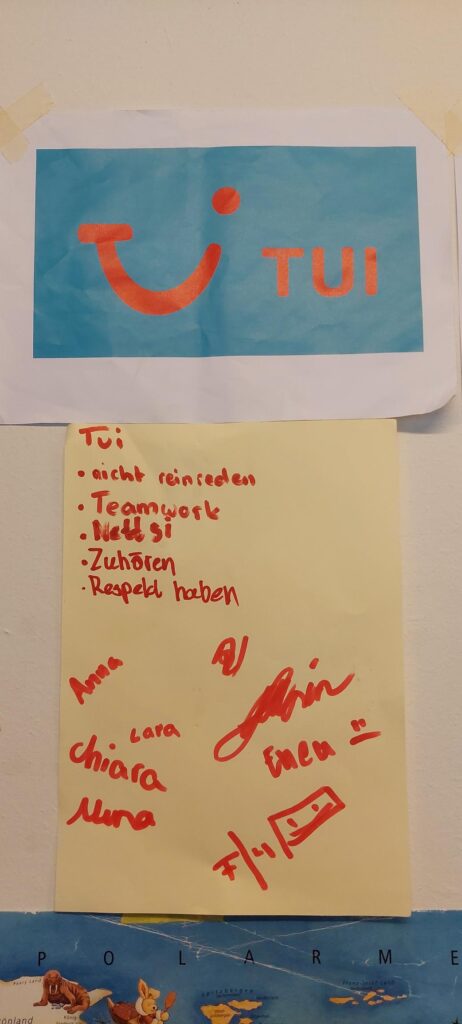 TUI
Tui
• nicht reinreden
• Teamwork
• Nett si
• Zuhören
• Respekd haben
Anna
Lara
Chiara
Mina
POLARME